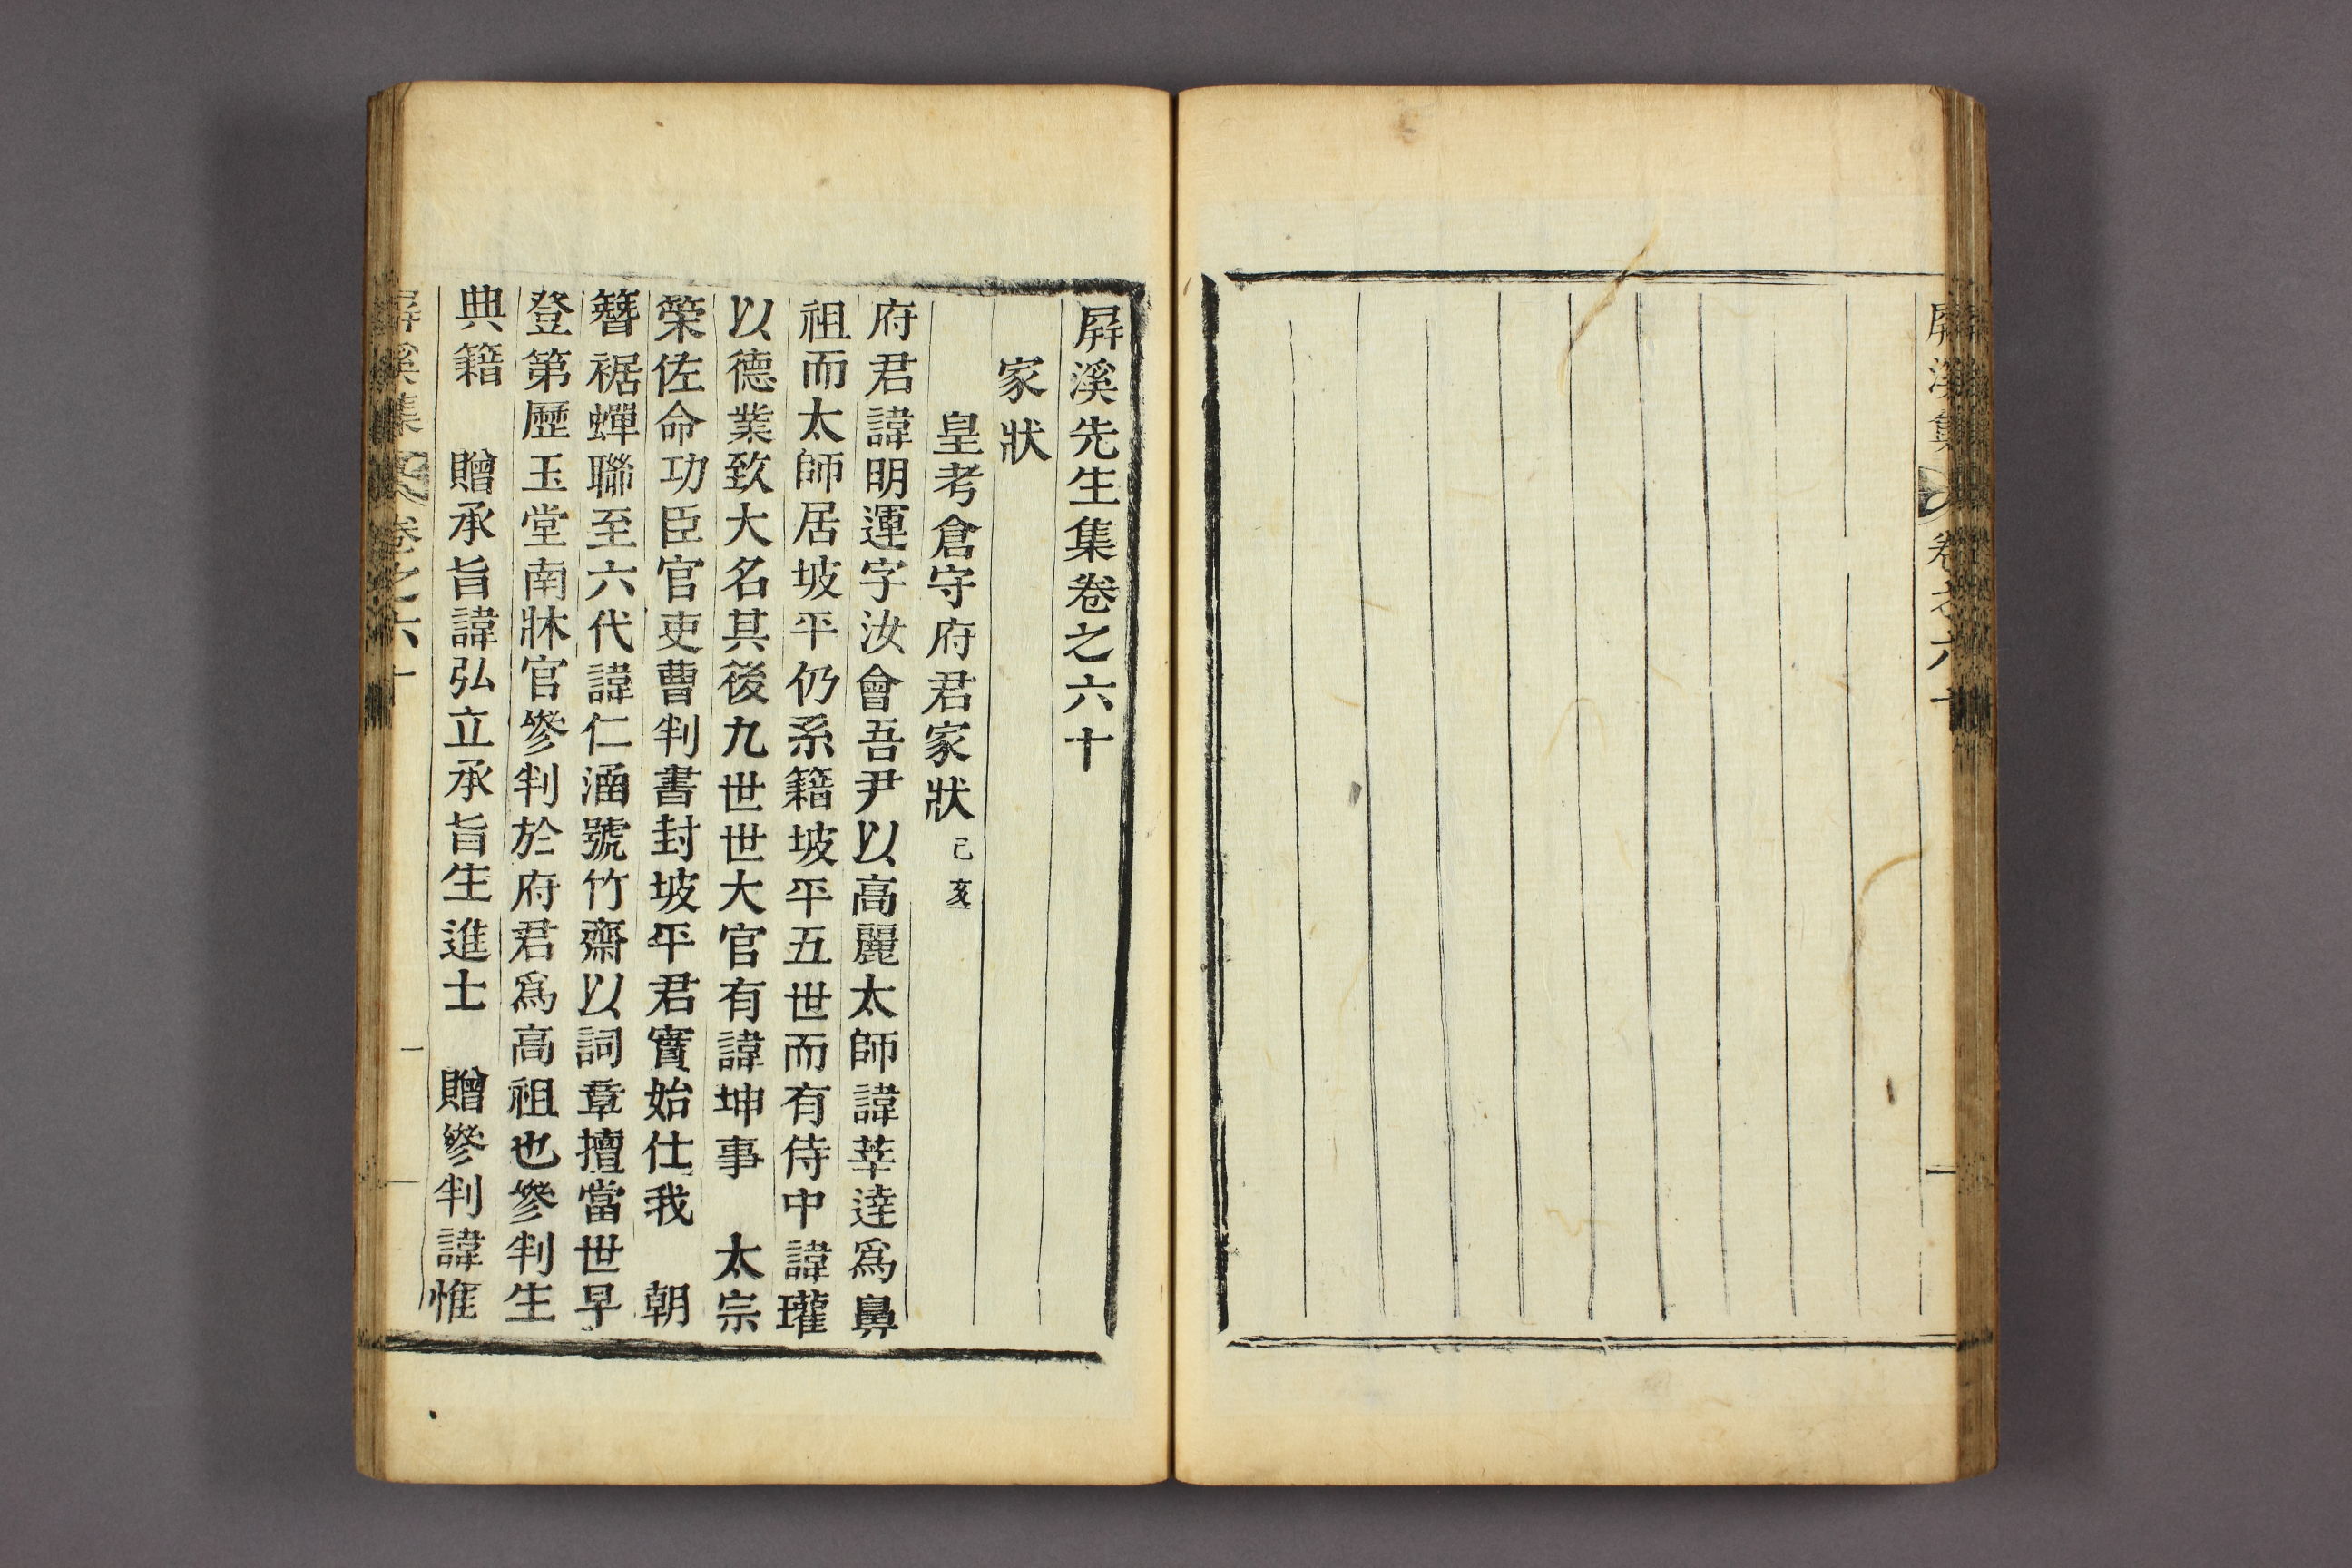 屛溪集 卷之六十 一
屛溪先生集卷之六十
家狀
皇考倉守府君家狀 己亥
府君諱明運字汝會吾尹以高麗太師諱莘達爲鼻
祖而太師居坡平仍系籍坡平五世而有侍中諱瓘
以德業致大名其後九世世大官有諱坤事 太宗
策佐命功臣官吏曹判書封坡平君實始仕我 朝
簪裾蟬聯至六代諱仁涵號竹齋以詞章擅當世早
登第歷玉堂南牀官參判於府君爲高祖也參判生
典籍 贈承旨諱弘立承旨生進士 贈參判諱惟
屛溪集 卷之六十 一